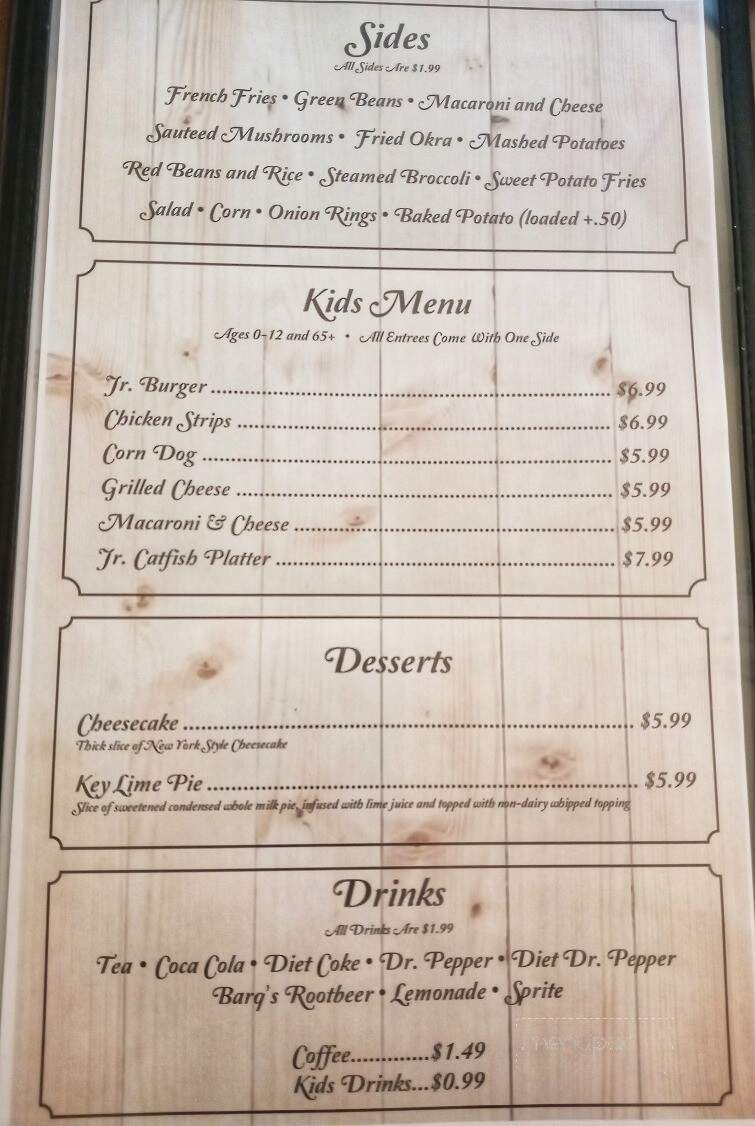 Sides
All Sides Are $1.99
French Fries • Green Beans • Macaroni and Cheese
Sauteed Mushrooms • Fried Okra • Mashed Potatoes
Red Beans and Rice • Steamed Broccoli • Sweet Potato Fries
Salad • Corn • Onion Rings • Baked Potato (loaded +.50)
Kids Menu
Ages 0-12 and 65+ • All Entrees Come With One Side
Jr. Burger ........ $6.99
Chicken Strips ........ $6.99
Corn Dog ........ $5.99
Grilled Cheese ........ $5.99
Macaroni & Cheese ........ $5.99
Jr. Catfish Platter ........ $7.99
Desserts
Cheesecake ........ $5.99
Thick slice of New York Style Cheesecake
Key Lime Pie ........ $5.99
Slice of sweetened condensed whole milk pie, infused with lime juice and topped with non-dairy whipped topping
Drinks
All Drinks Are $1.99
Tea • Coca Cola • Diet Coke • Dr. Pepper • Diet Dr. Pepper
Barq's Rootbeer • Lemonade • Sprite
Coffee.............$1.49
Kids Drinks...$0.99